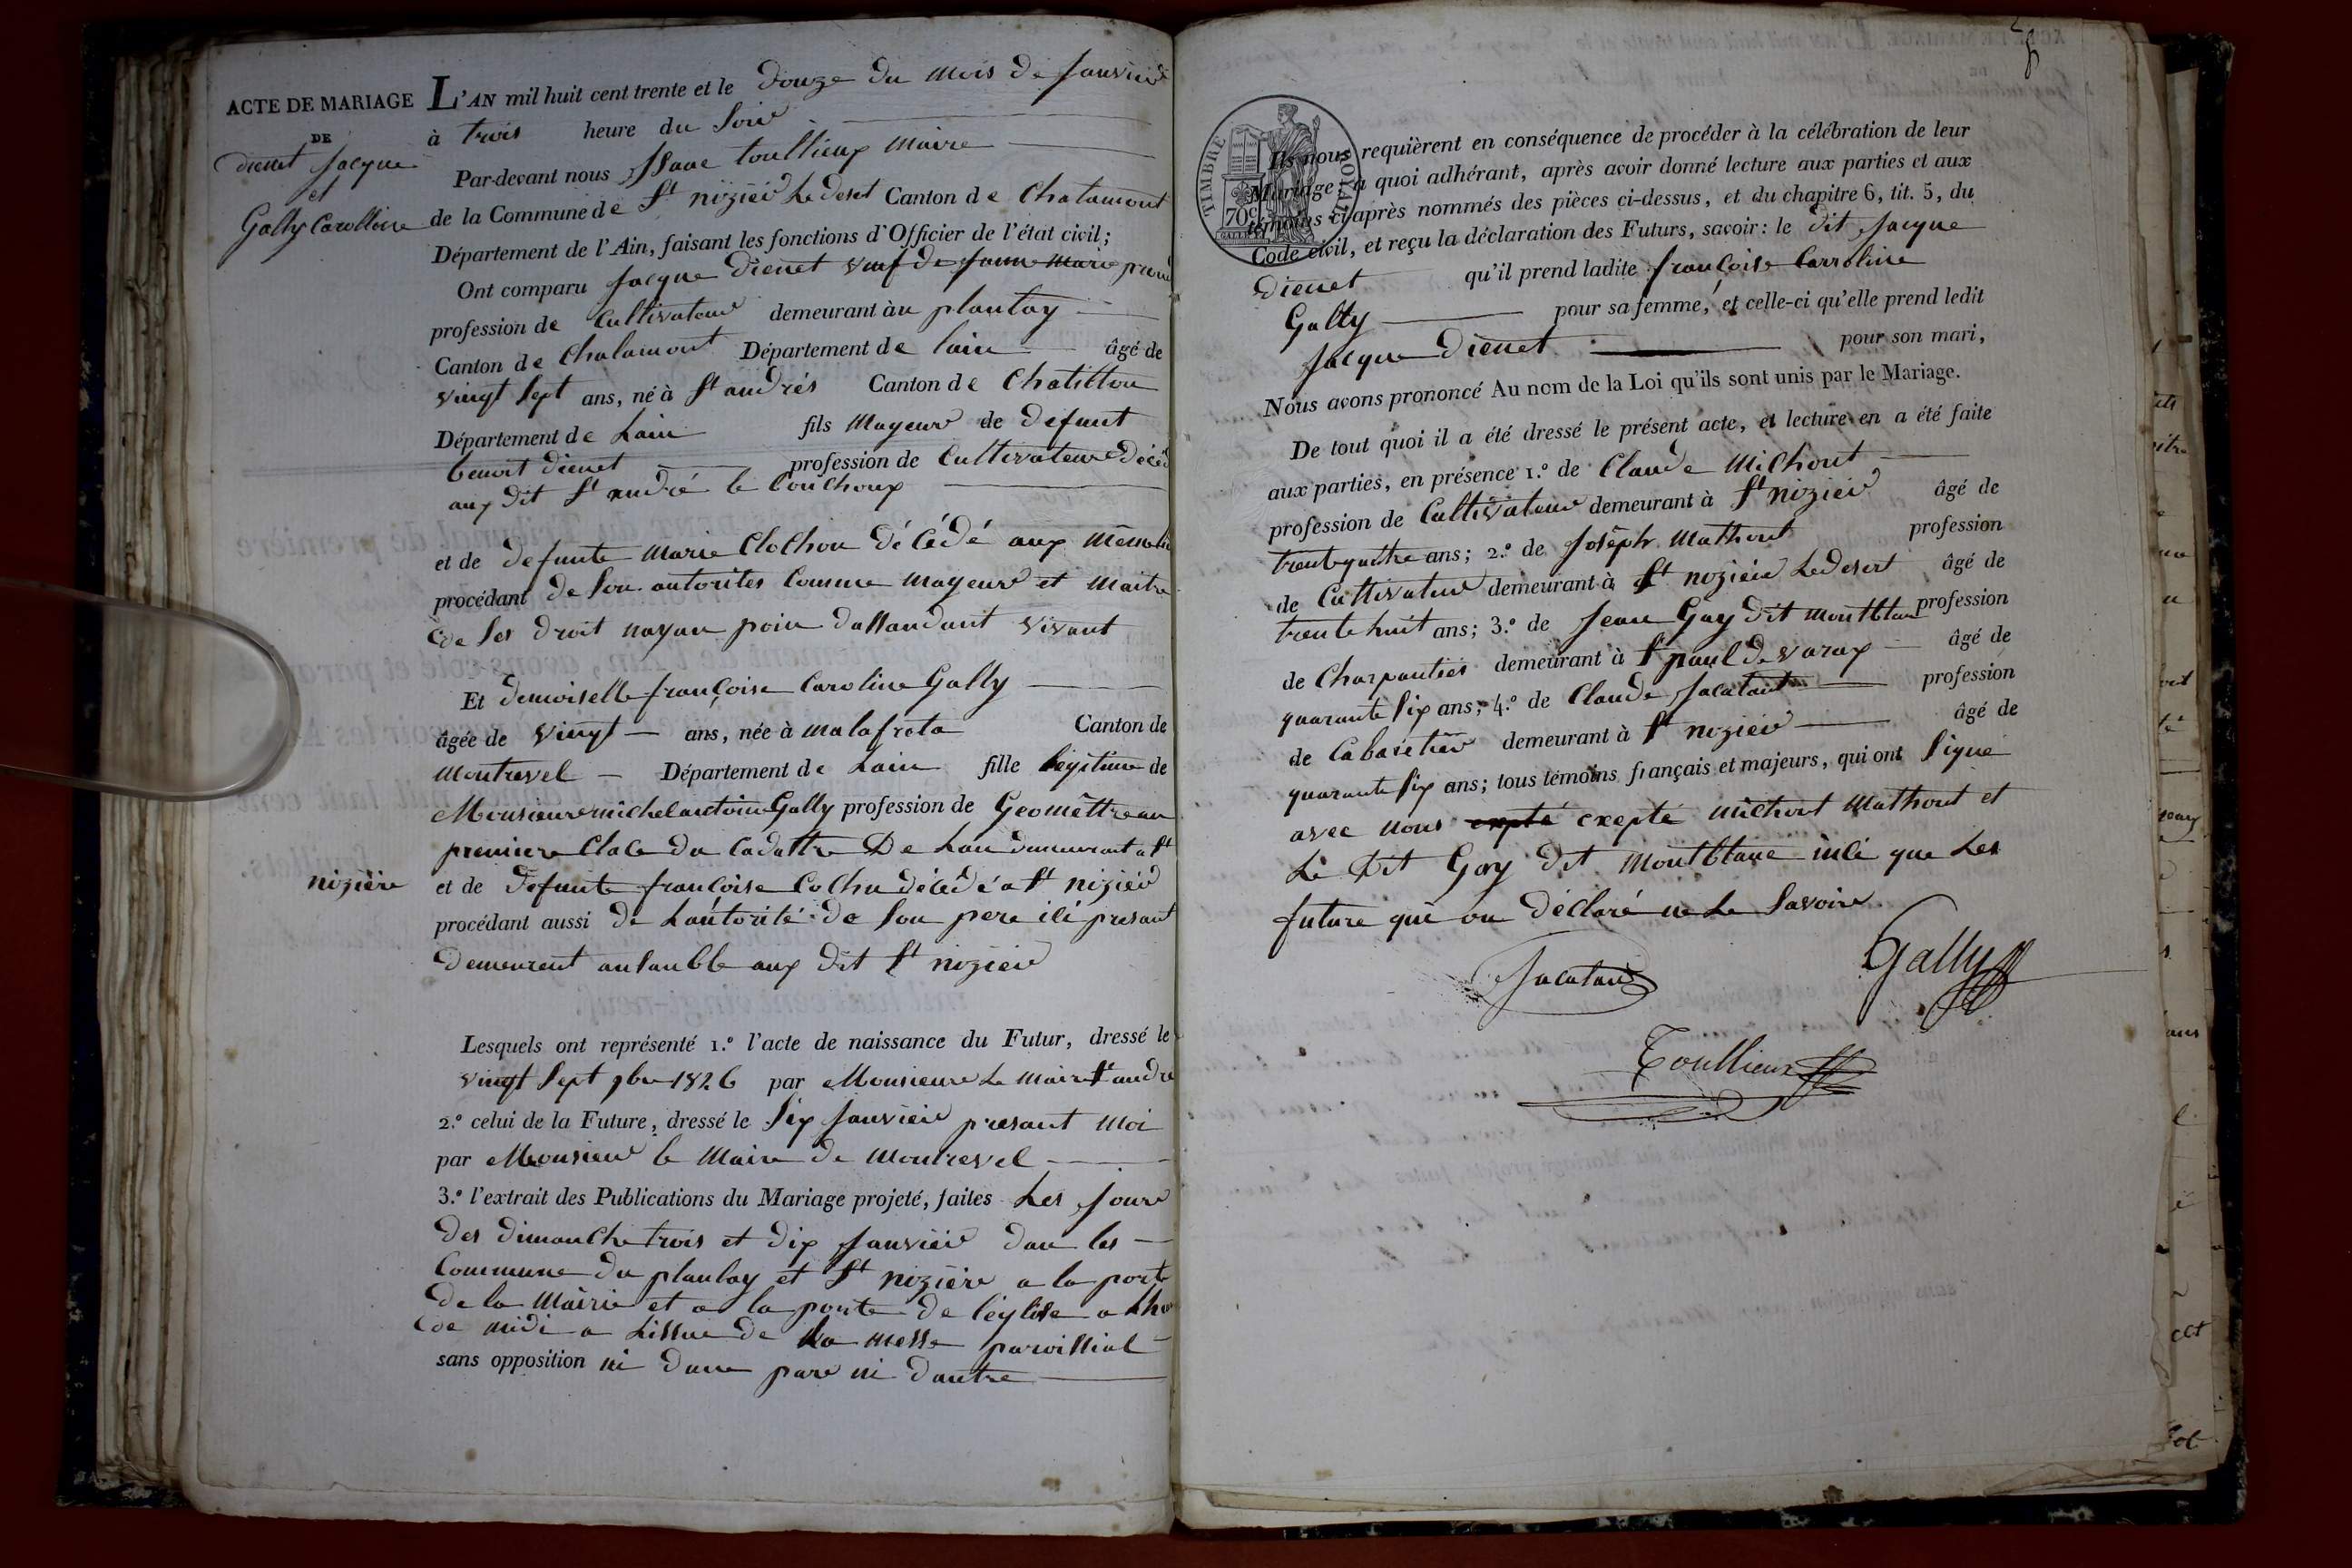 ACTE DE MARIAGE
DE
dienet Jacque
et
Gally Carolline
L'AN mil huit cent trente et le Douze du mois de Janvier
à trois heure du Soir
Par-devant nous Isaac toullieux maire
de la Commune de St nizier Le desert Canton de Chalamont
Département de l'Ain, faisant les fonctions d'Officier de l'état civil;
Ont comparu Jacque dienet veuf de
profession de Cultivateur demeurant àu plantay
Canton de Chalamont Département de lain âgé de
vingt Sept ans, né à St andrés Canton de Chatillon
Département de Lain fils mayeur de defunt
benoit dienet profession de Cultivateur
aux dit St andré le bouchoux
et de defunte marie Clochon décédé aux
procédant de Son autorites Comme mayeur et maitre
de Ses droit nayan poin dassandant vivant
Et demoiselle françoise Caroline Gally
âgée de vingt ans, née à malafreta Canton de
montrevel Département de Lain fille legitime de
Monsieur michel antoine Gally profession de Geomettre au
premiere Clace du Cadattre De Lain demeurant a St
nizière
et de defunte françoise Cochu décédé a St nizier
procédant aussi de Lautorité de Son pere ici presant
demeurent ansanble aux dit St nizier
Lesquels ont représenté 1.º l'acte de naissance du Futur, dressé le
vingt Sept 9bre 1826 par Monsieur Le maire St andre
2.º celui de la Future, dressé le Six Janvier presant moi
par Monsieur le Maire de montrevel
3.º l'extrait des Publications du Mariage projeté, faites Les Jour
des dimanche trois et dix Janvier dan les
Commune du plantay et St nizière a la porte
de la Mairie et a la porte de léglise a
de midi a Lissue de La messe paroissial
sans opposition ni dune pare ni dautre
TIMBRE ROYAL
70c
Ils nous requièrent en conséquence de procéder à la célébration de leur
Mariage; à quoi adhérant, après avoir donné lecture aux parties et aux
témoins ci-après nommés des pièces ci-dessus, et du chapitre 6, tit. 5, du
Code civil, et reçu la déclaration des Futurs, savoir: le dit Jacque
dienet qu'il prend ladite françoise Carroline
Gally pour sa femme, et celle-ci qu'elle prend ledit
Jacque dienet pour son mari,
Nous avons prononcé Au nom de la Loi qu'ils sont unis par le Mariage.
De tout quoi il a été dressé le présent acte, et lecture en a été faite
aux parties, en présence 1.º de Claude Michout
profession de Cultivateur demeurant à St nizier âgé de
trente quttre ans; 2.º de Joseph Mathout profession
de Cultivateur demeurant à St nizier Le desert âgé de
trente huit ans; 3.º de Jean Gay dit montblanc profession
de Charpantier demeurant à St paul de varax âgé de
quarante Six ans; 4.º de Claude Jacatant profession
de Cabaretier demeurant à St nizier âgé de
quarante Six ans; tous témoins français et majeurs, qui ont Signé
avec nous expté exepté michout Mathout et
Le Dit Gay dit montblanc insi que Les
future qui on déclaré ne Le Savoir
Jacatant
Gally
Toullieux